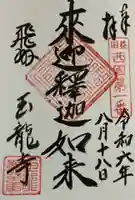 奉拝
西国第一番
令和六年
八月十八日
來迎釋迦如来
飛州
玉龍寺